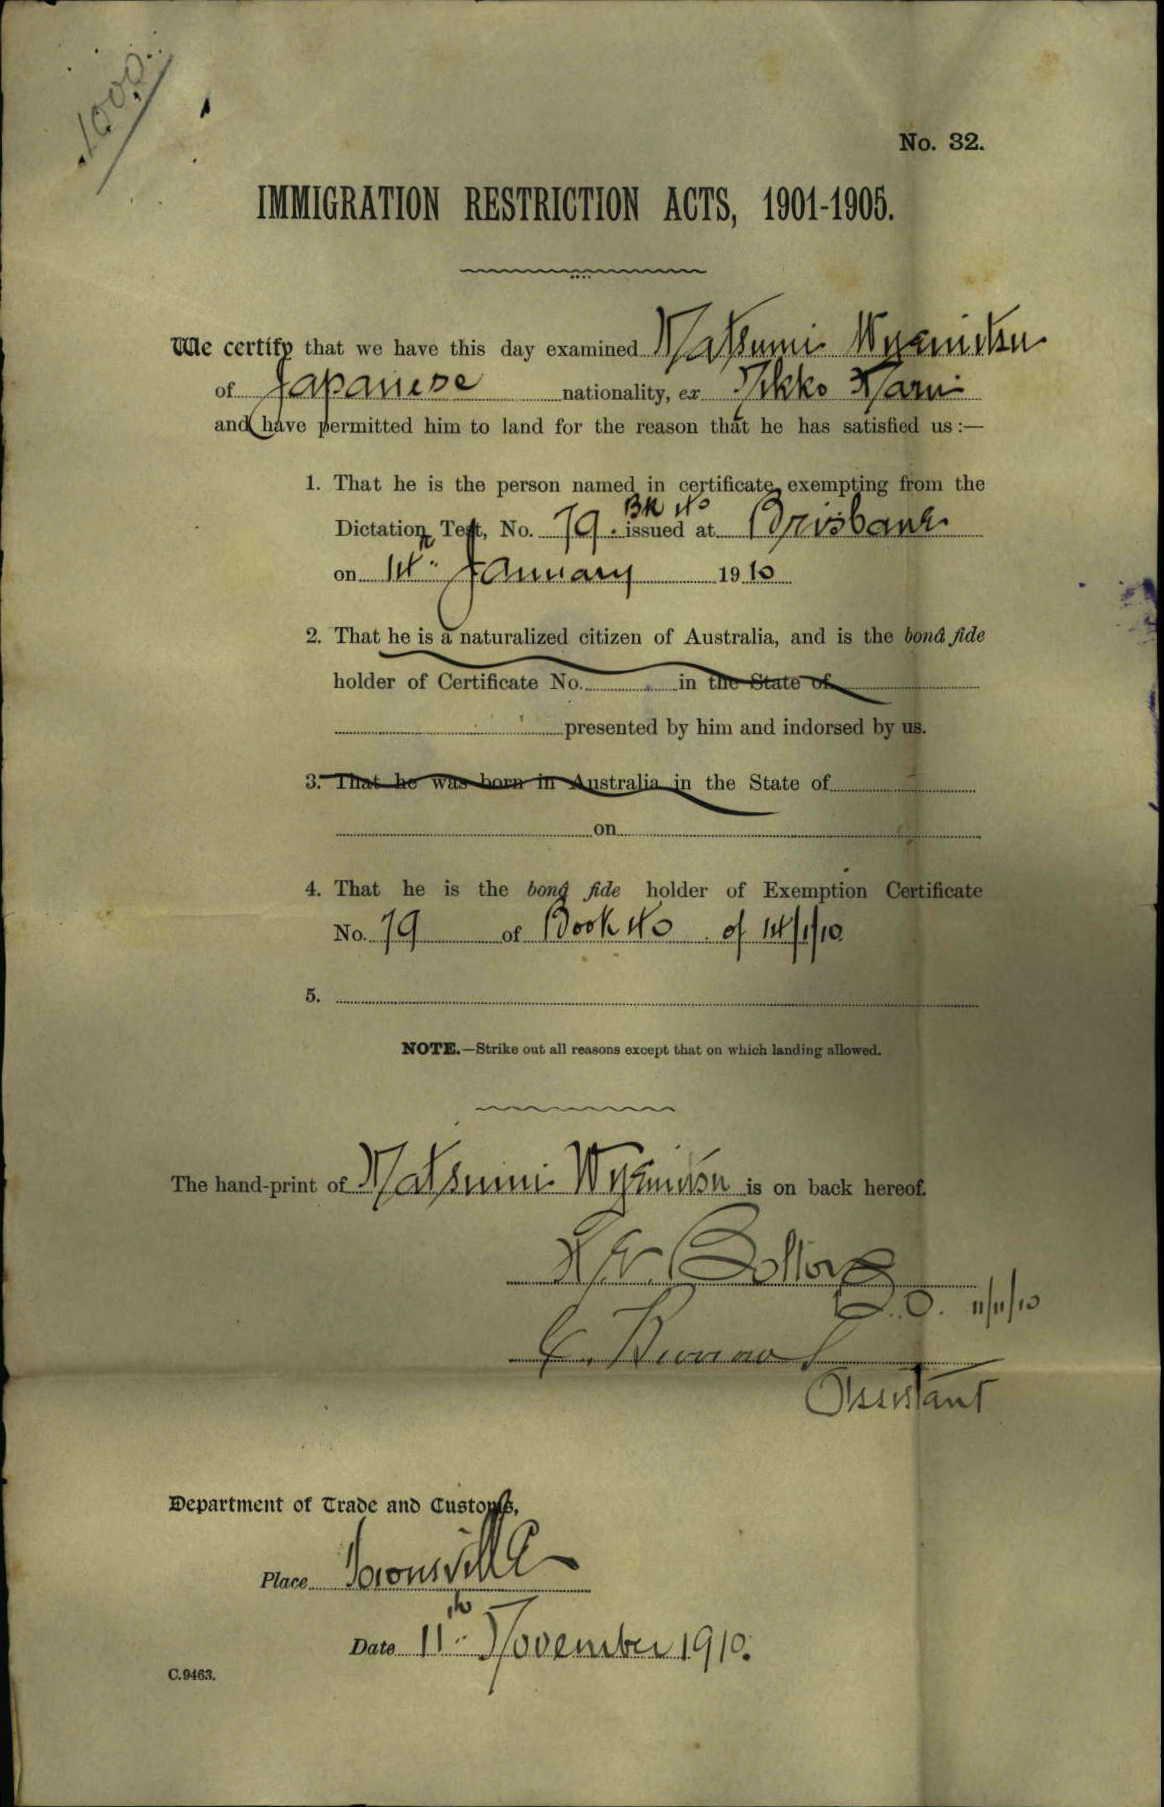 1000
No. 32.
IMMIGRATION RESTRICTION ACTS, 1901-1905.
We certify that we have this day examined Matsumi Wyemitsu
of Japanese nationality, ex Nikko Maru
and have permitted him to land for the reason that he has satisfied us :—
1. That he is the person named in certificate exempting from the
Bk 40
Dictation Test, No. 79. issued at Brisbane
on 14th January 1910
2. That he is a naturalized citizen of Australia, and is the bonâ fide
holder of Certificate No. in the State of
presented by him and indorsed by us.
3. That he was born in Australia in the State of
on
4. That he is the bonâ fide holder of Exemption Certificate
No. 79 of Book 40 of 14/1/10
5.
NOTE.—Strike out all reasons except that on which landing allowed.
The hand-print of Matsumi Wyemitsu is on back hereof.
Bolton
11/11/10
Assistant
Department of Trade and Customs,
Place Townsville
Date 11th November 1910.
C.9463.